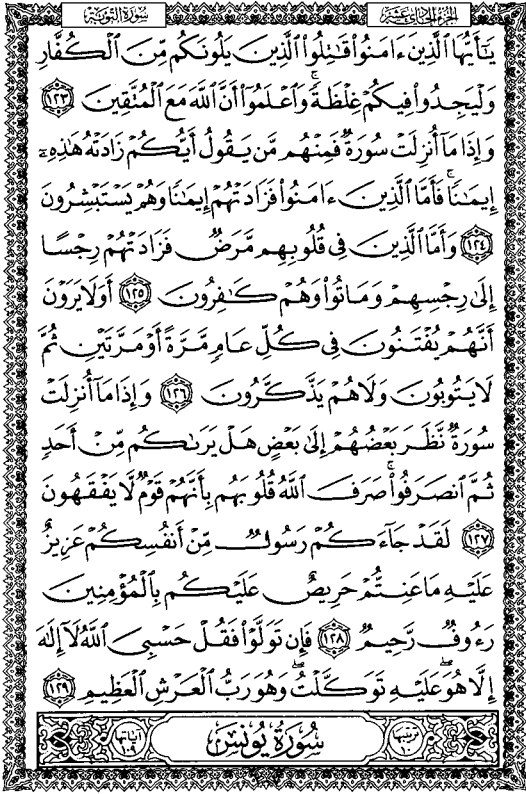 الجزء الحادي عشر سورة التوبة
يَٰٓأَيُّهَا ٱلَّذِينَ ءَامَنُوا۟ قَٰتِلُوا۟ ٱلَّذِينَ يَلُونَكُم مِّنَ ٱلْكُفَّارِ
وَلْيَجِدُوا۟ فِيكُمْ غِلْظَةً ۚ وَٱعْلَمُوٓا۟ أَنَّ ٱللَّهَ مَعَ ٱلْمُتَّقِينَ ١٢٣
وَإِذَا مَآ أُنزِلَتْ سُورَةٌ فَمِنْهُم مَّن يَقُولُ أَيُّكُمْ زَادَتْهُ هَٰذِهِۦٓ
إِيمَٰنًا ۚ فَأَمَّا ٱلَّذِينَ ءَامَنُوا۟ فَزَادَتْهُمْ إِيمَٰنًا وَهُمْ يَسْتَبْشِرُونَ
١٢٤ وَأَمَّا ٱلَّذِينَ فِى قُلُوبِهِم مَّرَضٌ فَزَادَتْهُمْ رِجْسًا
إِلَىٰ رِجْسِهِمْ وَمَاتُوا۟ وَهُمْ كَٰفِرُونَ ١٢٥ أَوَلَا يَرَوْنَ
أَنَّهُمْ يُفْتَنُونَ فِى كُلِّ عَامٍ مَّرَّةً أَوْ مَرَّتَيْنِ ثُمَّ
لَا يَتُوبُونَ وَلَا هُمْ يَذَّكَّرُونَ ١٢٦ وَإِذَا مَآ أُنزِلَتْ
سُورَةٌ نَّظَرَ بَعْضُهُمْ إِلَىٰ بَعْضٍ هَلْ يَرَىٰكُم مِّنْ أَحَدٍ
ثُمَّ ٱنصَرَفُوا۟ ۚ صَرَفَ ٱللَّهُ قُلُوبَهُم بِأَنَّهُمْ قَوْمٌ لَّا يَفْقَهُونَ
١٢٧ لَقَدْ جَآءَكُمْ رَسُولٌ مِّنْ أَنفُسِكُمْ عَزِيزٌ
عَلَيْهِ مَا عَنِتُّمْ حَرِيصٌ عَلَيْكُم بِٱلْمُؤْمِنِينَ
رَءُوفٌ رَّحِيمٌ ١٢٨ فَإِن تَوَلَّوْا۟ فَقُلْ حَسْبِىَ ٱللَّهُ لَآ إِلَٰهَ
إِلَّا هُوَ ۖ عَلَيْهِ تَوَكَّلْتُ ۖ وَهُوَ رَبُّ ٱلْعَرْشِ ٱلْعَظِيمِ ١٢٩
ترتيبها ١٠ سُورَةُ يُونُسَ آياتها ١٠٩